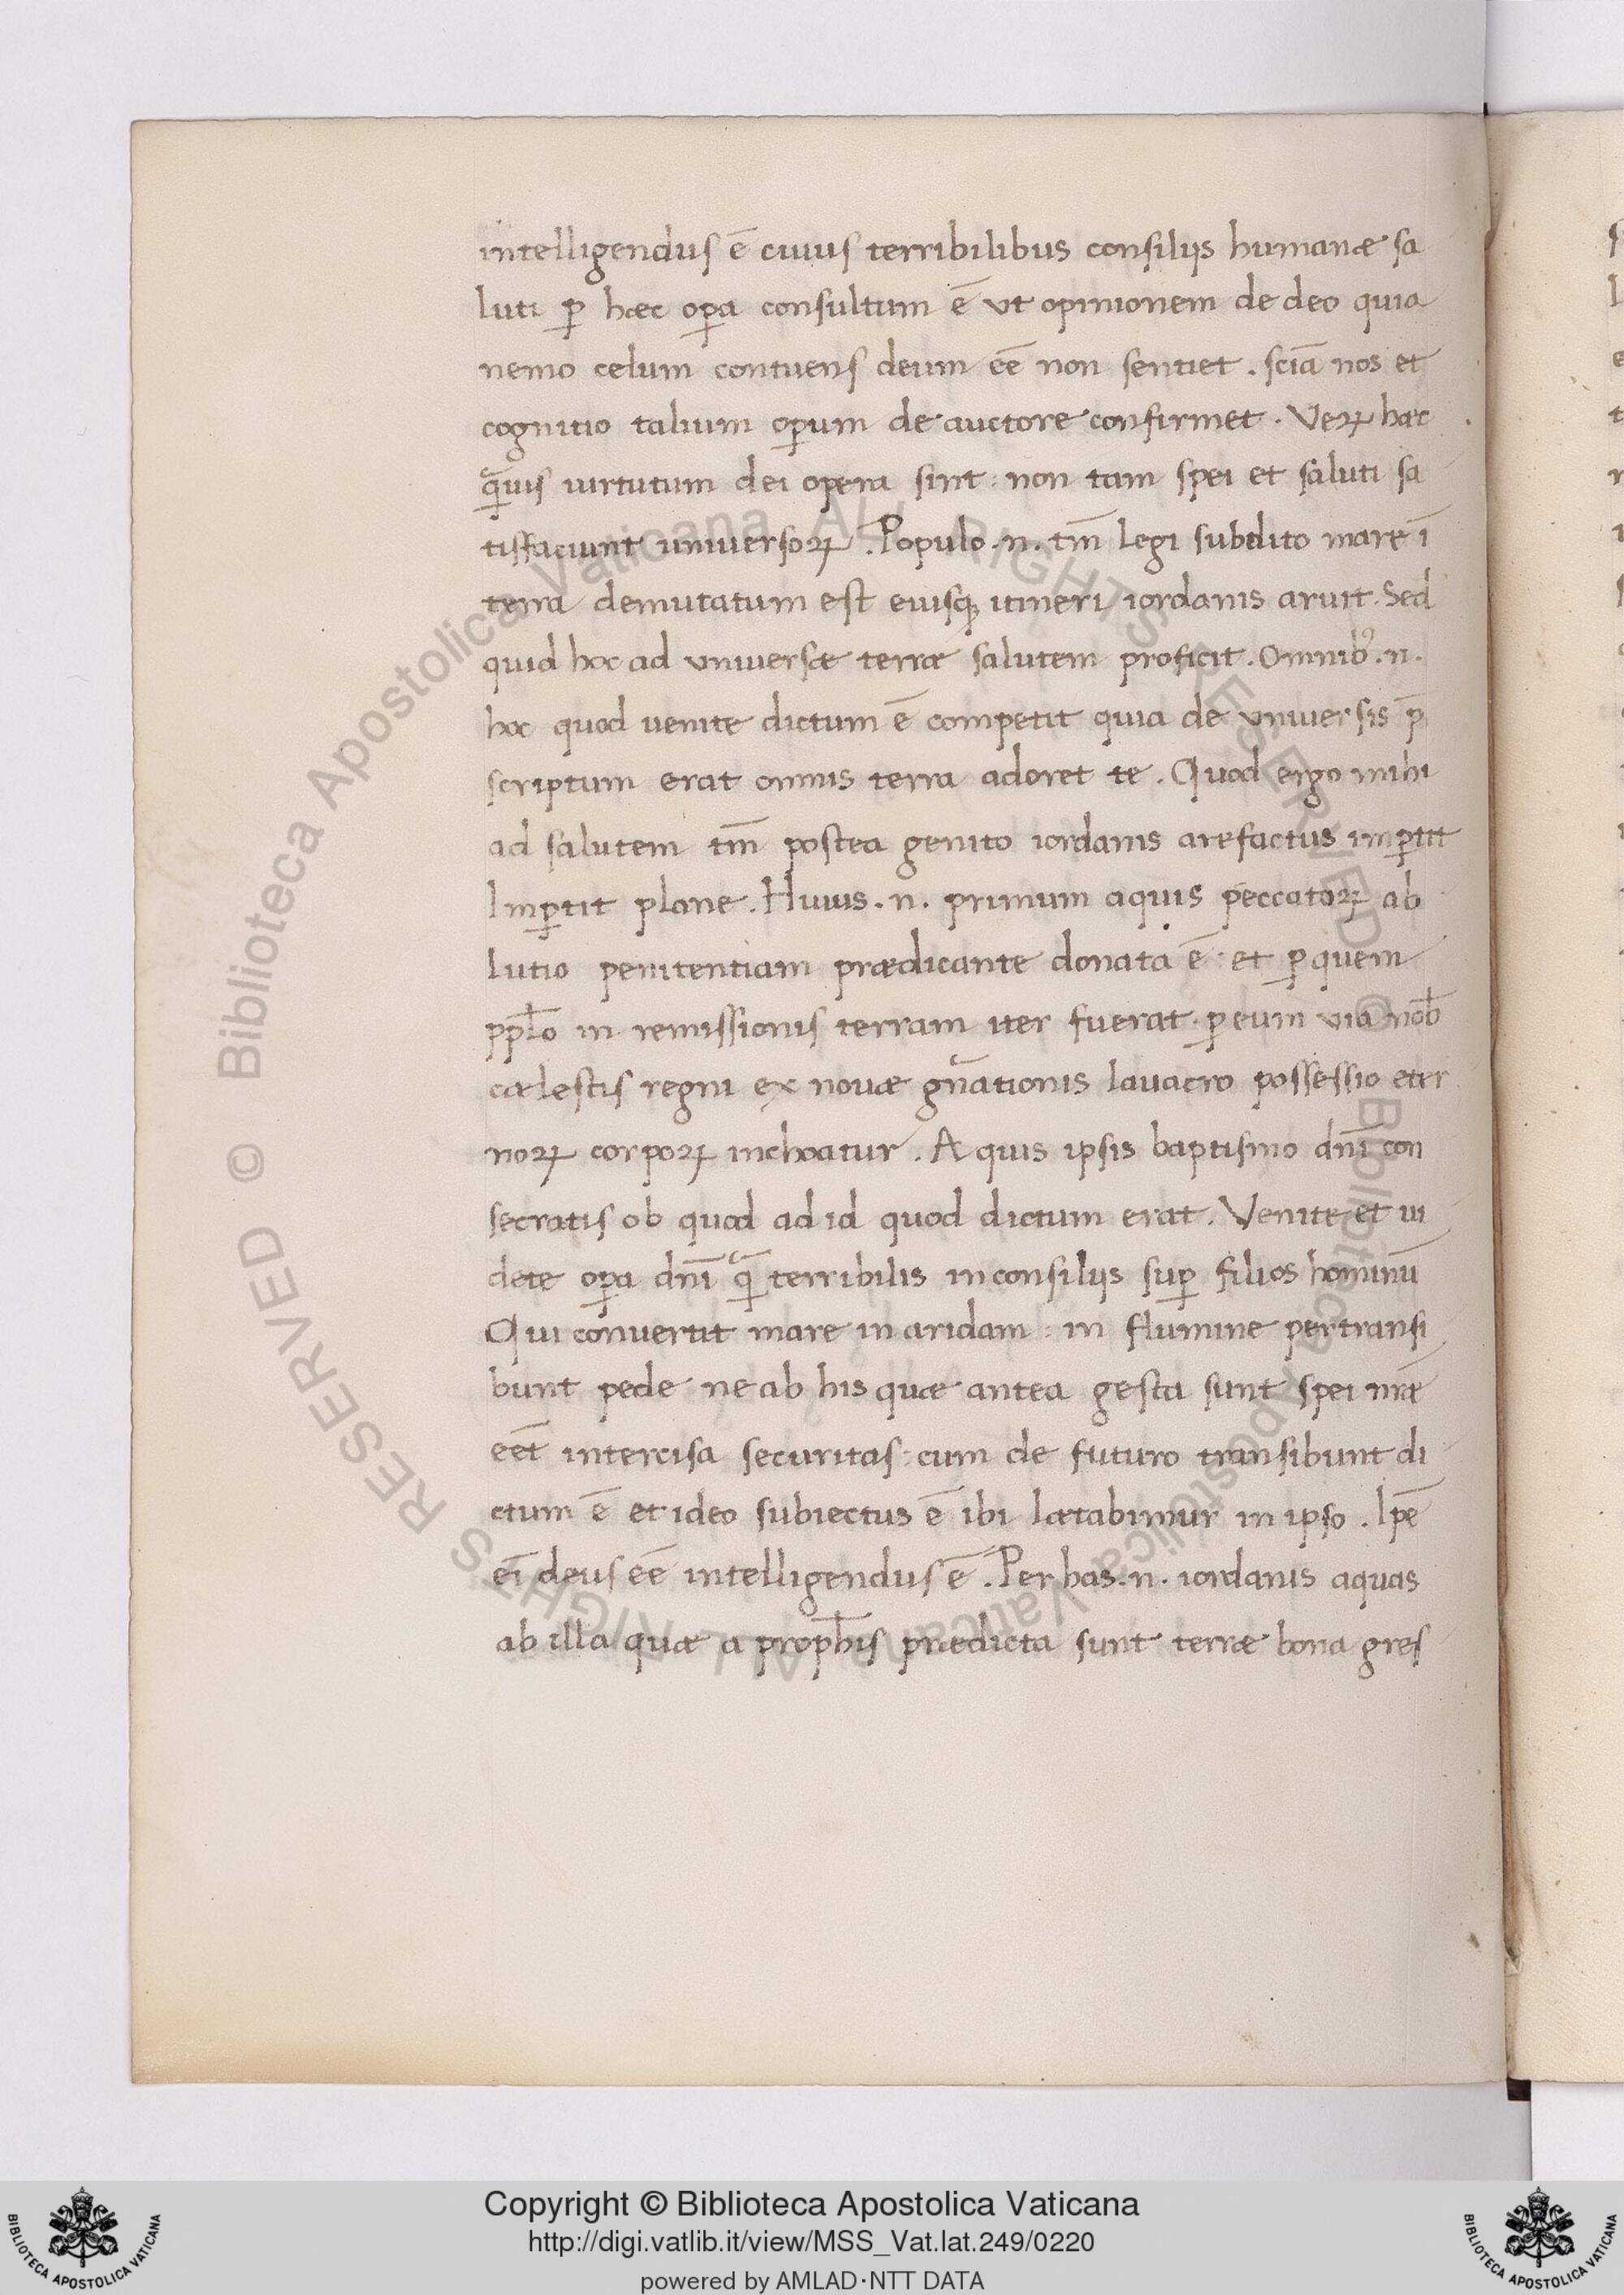 intelligendus ē cuius terribilibus consiliis humanæ sa
luti ꝑ hæc oꝑa consultum ē ut opinionem de deo quia
nemo celum contuens deum eē non sentiet . sciā nos et
cognitio talium oꝑum de auctore confirmet . Veꝝ hæc
q̄uis uirtutum dei opera sint : non tam spei et saluti sa
tisfaciunt uniuersoꝝ . Populo .n. tm̄ legi subdito mare ī
terra demutatum est euisqꝫ itineri iordanis aruit . Sed
quid hoc ad uniuersæ terræ salutem proficit . Omnibꝰ .n.
hoc quod uenite dictum ē competit quia de uniuersis p̄
scriptum erat omnis terra adoret te . Quod ergo mihi
ad salutem tm̄ postea genito iordanis arefactus imꝑtit
Imꝑtit plane . Huius .n. primum aquis peccatoꝝ ab
lutio penitentiam prædicante donata ē : et ꝑ quem
ppl̄o in remissionis terram iter fuerat . ꝑ eum uia nob̄
cælestis regni ex nouæ gn̄ationis lauacro possessio eter
noꝝ corpoꝝ inchoatur . Aquis ipsis baptismo dn̄i con
secratis ob quod ad id quod dictum erat . Venite et ui
dete oꝑa dn̄i q̄ terribilis in consiliis suꝑ filios hominū
Qui conuertit mare in aridam : in flumine pertransi
bunt pede ne ab his quæ antea gesta sunt spei nr̄æ
eēt intercisa securitas : cum de futuro transibunt di
ctum ē et ideo subiectus ē ibi lætabimur in ipso . Ipē
eī deus eē intelligendus ē . Per has .n. iordanis aquas
ab illa quæ a proph̄is prædicta sunt terræ bona gres
Copyright © Biblioteca Apostolica Vaticana
http://digi.vatlib.it/view/MSS_Vat.lat.249/0220
powered by AMLAD·NTT DATA
BIBLIOTECA APOSTOLICA VATICANA
BIBLIOTECA APOSTOLICA VATICANA
© Biblioteca Apostolica Vaticana ALL RIGHTS RESERVED
© Biblioteca Apostolica Vaticana ALL RIGHTS RESERVED